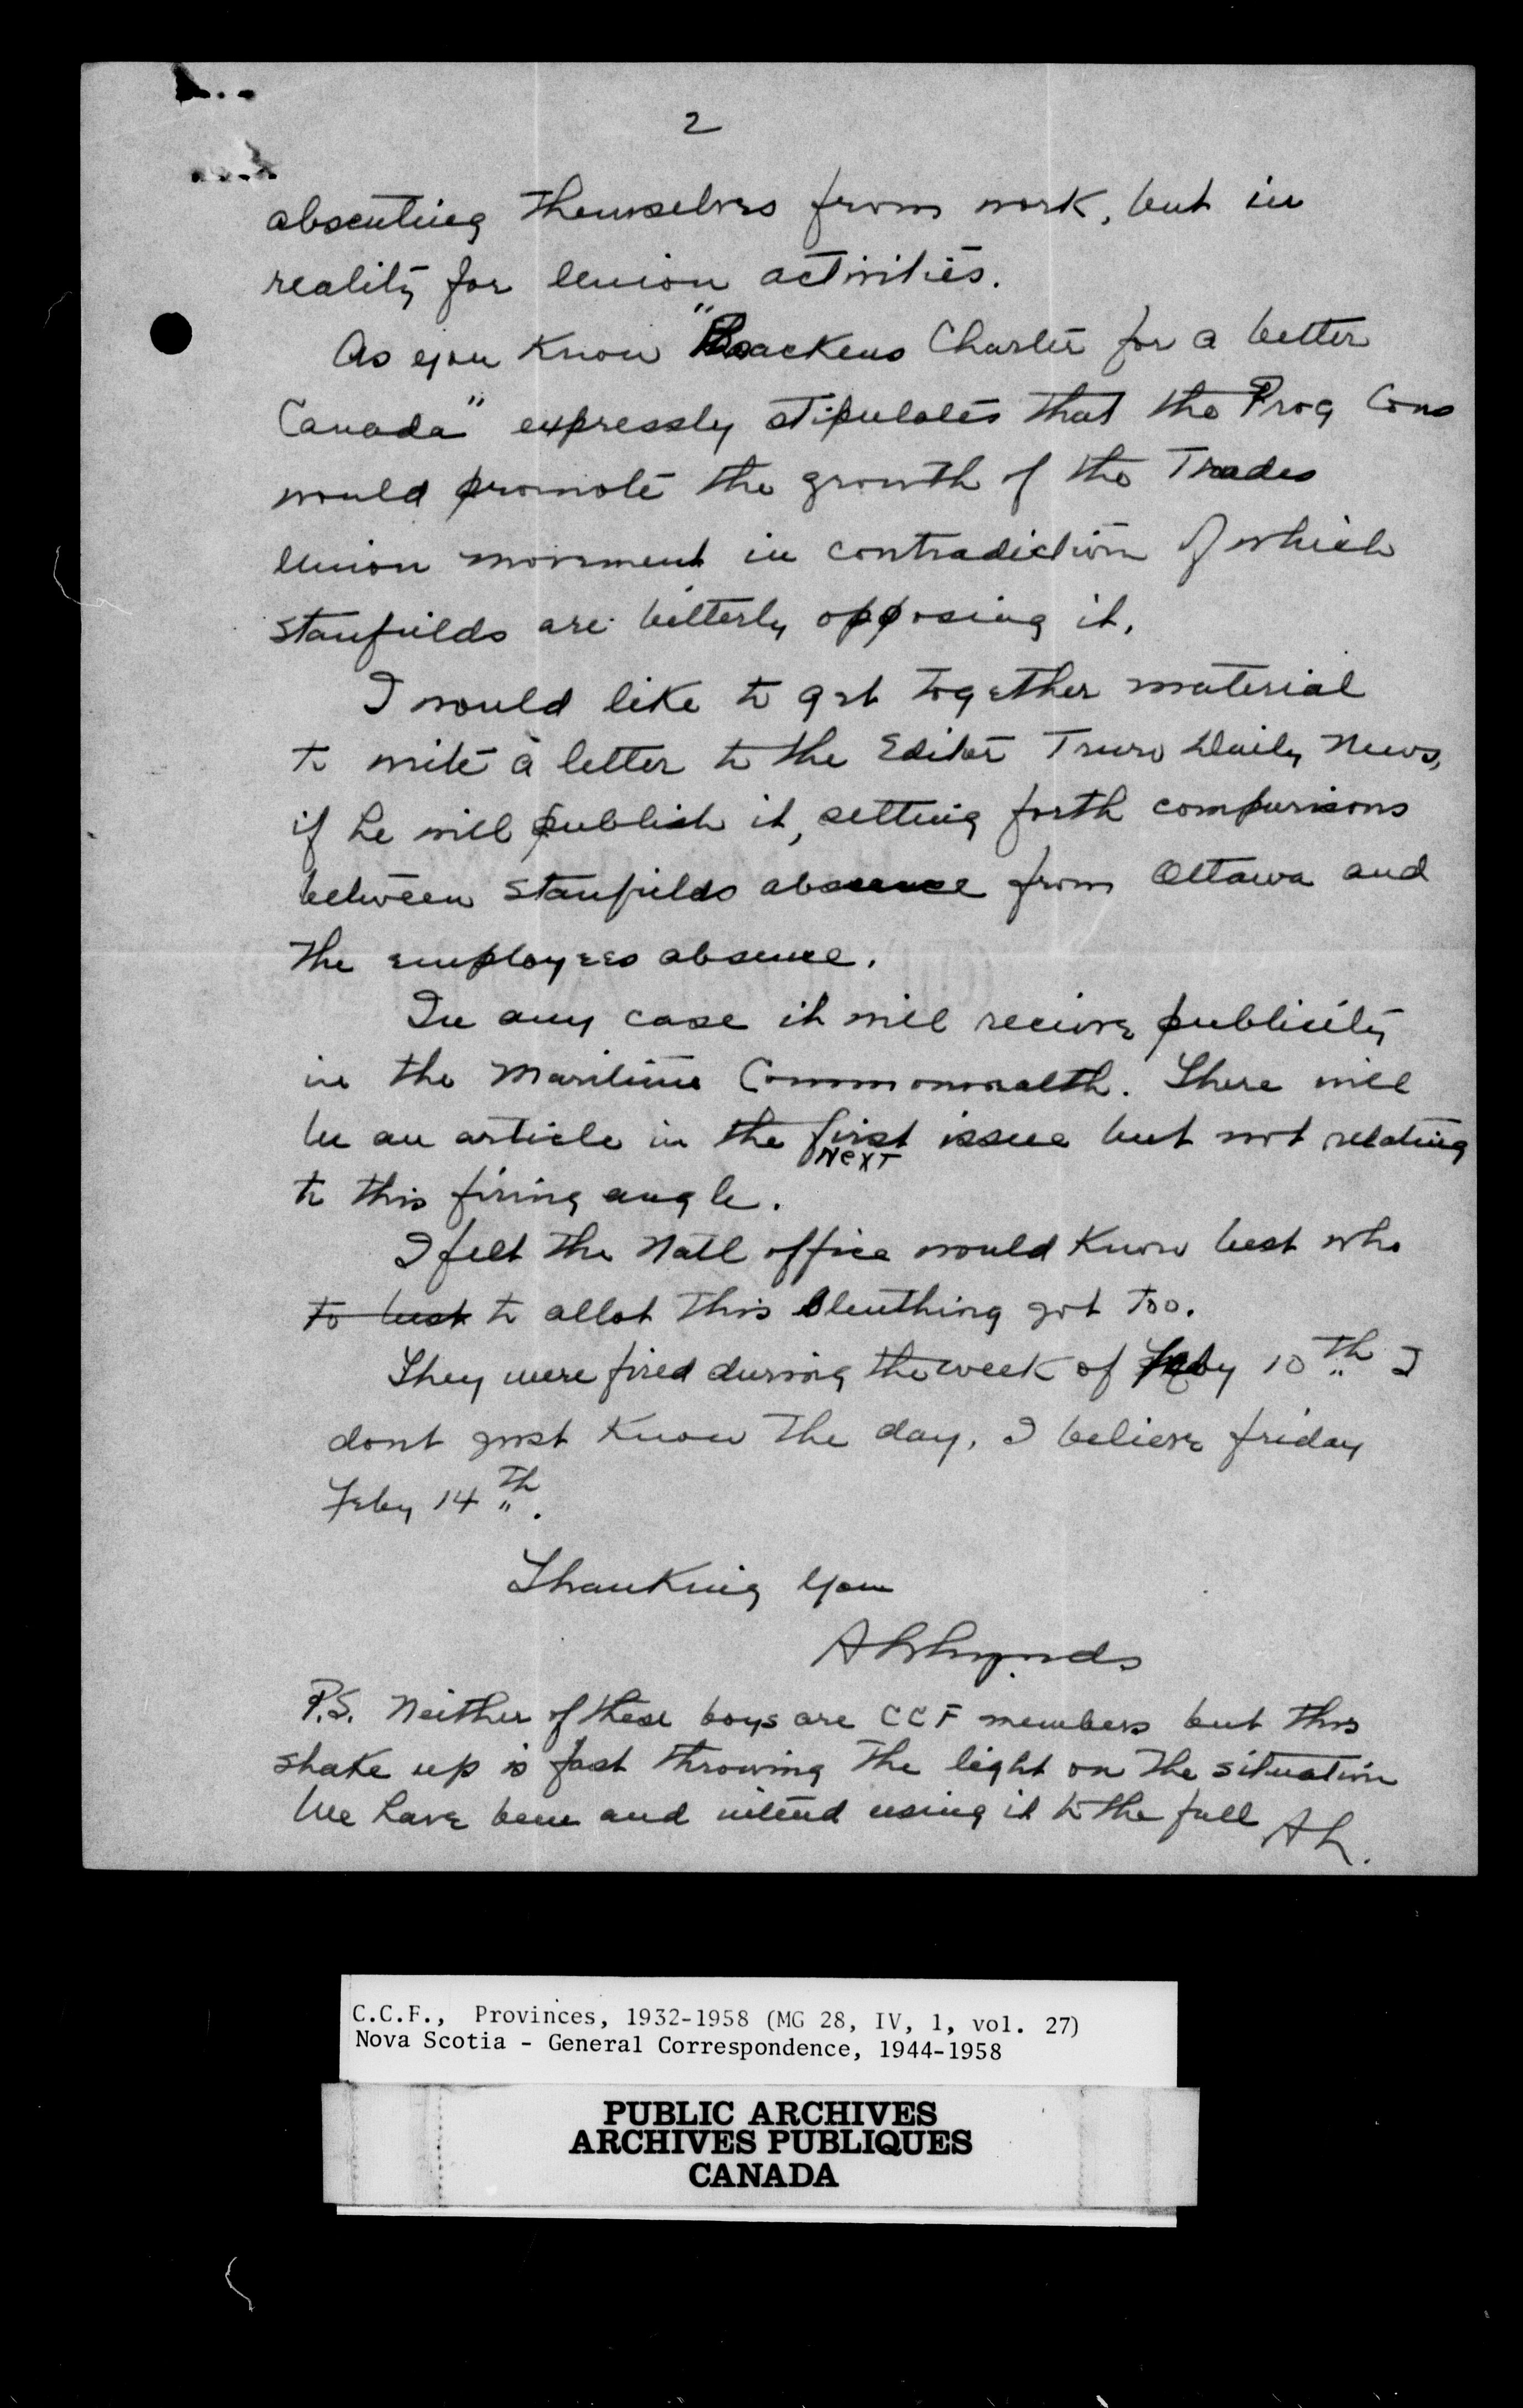 2
absenting themselves from work, but in
reality for Union activities.
As you know "Brackens Charter for a better
Canada" expressly stipulates that the Prog Cons
would promote the growth of the Trades
Union movement in contradiction of which
Stanfields are bitterly opposing it.
I would like to get together material
to write a letter to the Editor Truro Daily News,
if he will publish it, setting forth comparisons
between Stanfields absence from Ottawa and
the employees absence.
In any case it will recieve publicity
in the Maritime Commonwealth. There will
be an article in the first issue but not relating
Next
to this firing angle.
I felt the Natl office would know best who
to best to allot this sleuthing job too.
They were fired during the week of Feby 10th I
dont just know the day, I believe friday
Feby 14th.
Thanking you
P.S. Neither of these boys are CCF members but this
shake up is fast throwing the light on the situation
We have been and intend using it to the full AL.
C.C.F., Provinces, 1932-1958 (MG 28, IV, 1, vol. 27)
Nova Scotia - General Correspondence, 1944-1958
PUBLIC ARCHIVES
ARCHIVES PUBLIQUES
CANADA